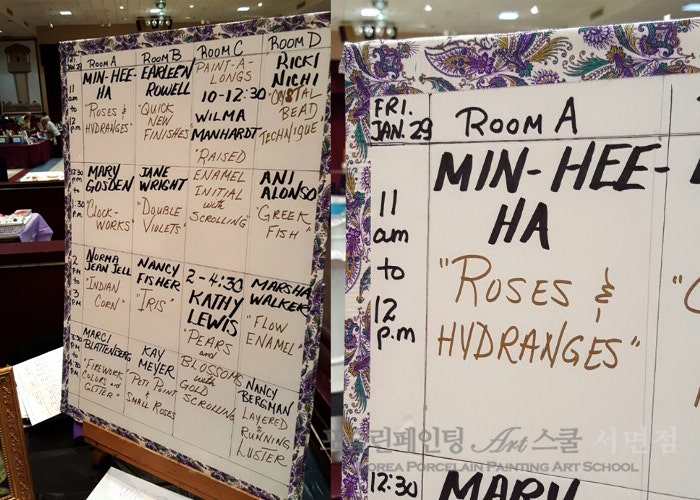 FRI.
JAN 29
ROOM A
ROOM B
ROOM C
ROOM D
11
am
to
12
p.m
MIN-HEE-
HA
"ROSES &
HYDRANGES"
EARLEEN
ROWELL
"QUICK
NEW
FINISHES"
PAINT-A-
LONGS
10-12:30
WILMA
MANHARDT
"RAISED
ENAMEL
INITIAL
with
SCROLLING"
RICKI
NICHI
"CRYSTAL
BEAD
TECHNIQUE"
12:30
P.M
to
1:30
P.M
MARY
GOSDEN
"CLOCK-
WORKS"
JANE
WRIGHT
"DOUBLE
VIOLETS"
ANI
ALONSO
"GREEK
FISH"
2
P.M
to
3
P.M
NORMA
JEAN JELL
"INDIAN
CORN"
NANCY
FISHER
"IRIS"
2-4:30
KATHY
LEWIS
"PEARS
and
BLOSSOMS
with
GOLD
SCROLLING
MARSHA
WALKER
"FLOW
ENAMEL"
3:30
P.M
to
4:30
P.M
MARCI
BLATTENBERG
"FIREWORK
COLORS and
GLITTER"
KAY
MEYER
"PETI POINT &
SMALL ROSES
NANCY
BERGMAN
LAYERED
&
RUNNING
LUSTER
FRI.
JAN. 29
ROOM A
11
am
to
12
p.m
MIN-HEE-
HA
"ROSES &
HYDRANGES"
12:30
MARY
린페인팅 Art 스쿨 서면점
KOREA PORCELAIN PAINTING ART SCHOOL